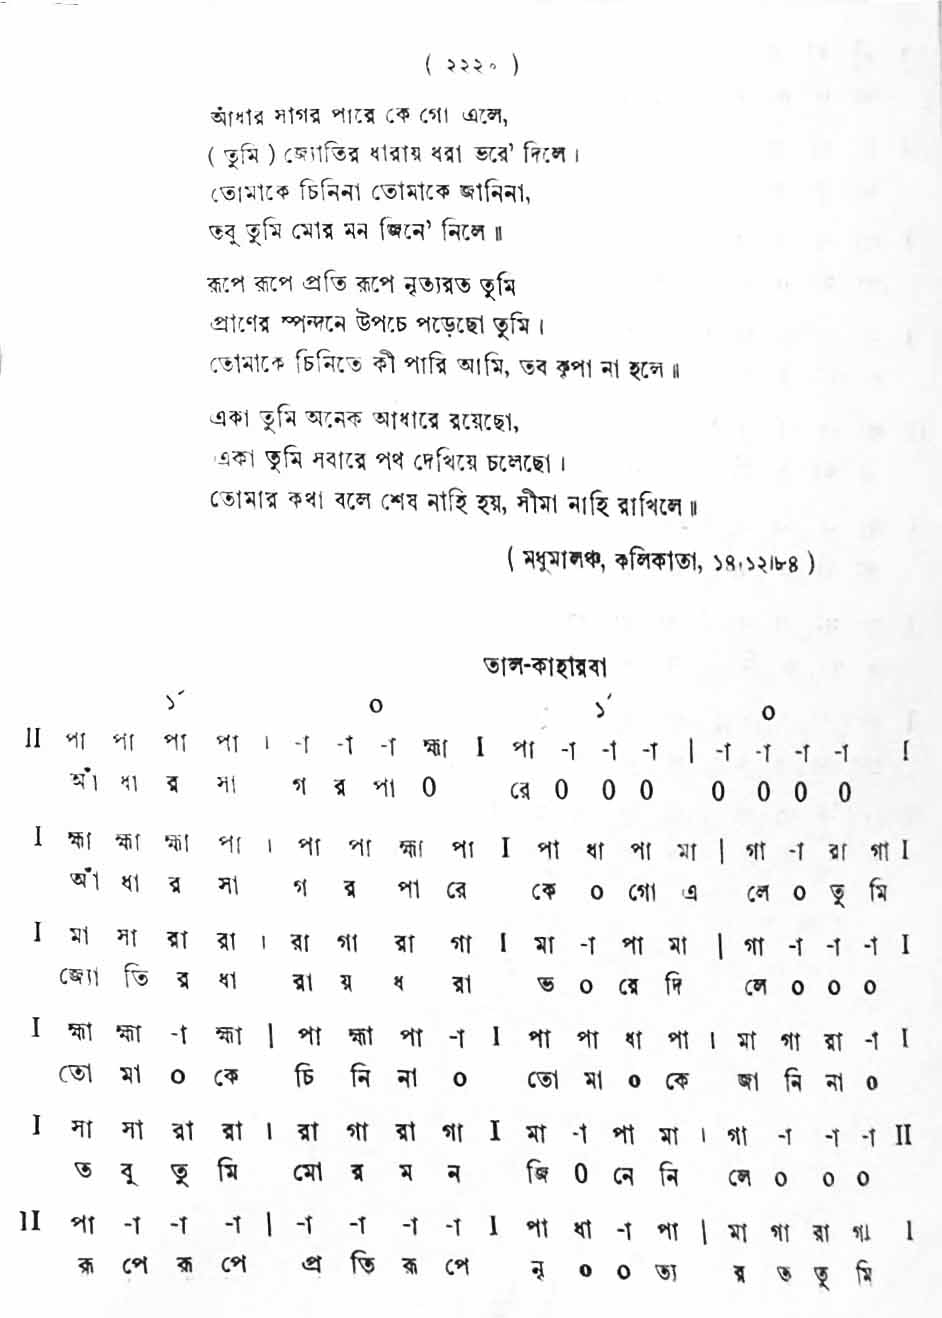 ( ২২২০ )
আঁধার সাগর পারে কে গো এলে,
( তুমি ) জ্যোতির ধারায় ধরা ভরে’ দিলে ।
তোমাকে চিনিনা তোমাকে জানিনা,
তবু তুমি মোর মন জিনে’ নিলে ॥
রূপে রূপে প্রতি রূপে নৃত্যরত তুমি
প্রাণের স্পন্দনে উপচে পড়েছো তুমি ।
তোমাকে চিনিতে কী পারি আমি, তব কৃপা না হলে ॥
একা তুমি অনেক আধারে রয়েছো,
একা তুমি সবারে পথ দেখিয়ে চলেছো ।
তোমার কথা বলে শেষ নাহি হয়, সীমা নাহি রাখিলে ॥
( মধুমালঞ্চ, কলিকাতা, ১৪.১২।৮৪ )
তাল-কাহারবা
১´ 0 ১´ 0
II পা পা পা পা । -া -া -া হ্মা I পা -া -া -া | -া -া -া -া I
আঁ ধা র সা গ র পা 0 রে 0 0 0 0 0 0 0
I হ্মা হ্মা হ্মা পা । পা পা হ্মা পা I পা ধা পা মা | গা -া রা গা I
আঁ ধা র সা গ র পা রে কে ০ গো এ লে ০ তু মি
I মা সা রা রা । রা গা রা গা I মা -া পা মা | গা -া -া -া I
জ্যো তি র ধা রা য় ধ রা ভ ০ রে দি লে ০ ০ ০
I হ্মা হ্মা -া হ্মা | পা হ্মা পা -া I পা পা ধা পা । মা গা রা -া I
তো মা ০ কে চি নি না ০ তো মা ০ কে জা নি না ০
I সা সা রা রা । রা গা রা গা I মা -া পা মা । গা -া -া -া II
ত বু তু মি মো র ম ন জি 0 নে নি লে ০ ০ ০
II পা -া -া -া | -া -া -া -া I পা ধা -া পা | মা গা রা গা I
রূ পে রূ পে প্র তি রূ পে নৃ ০ ০ ত্য র ত তু মি